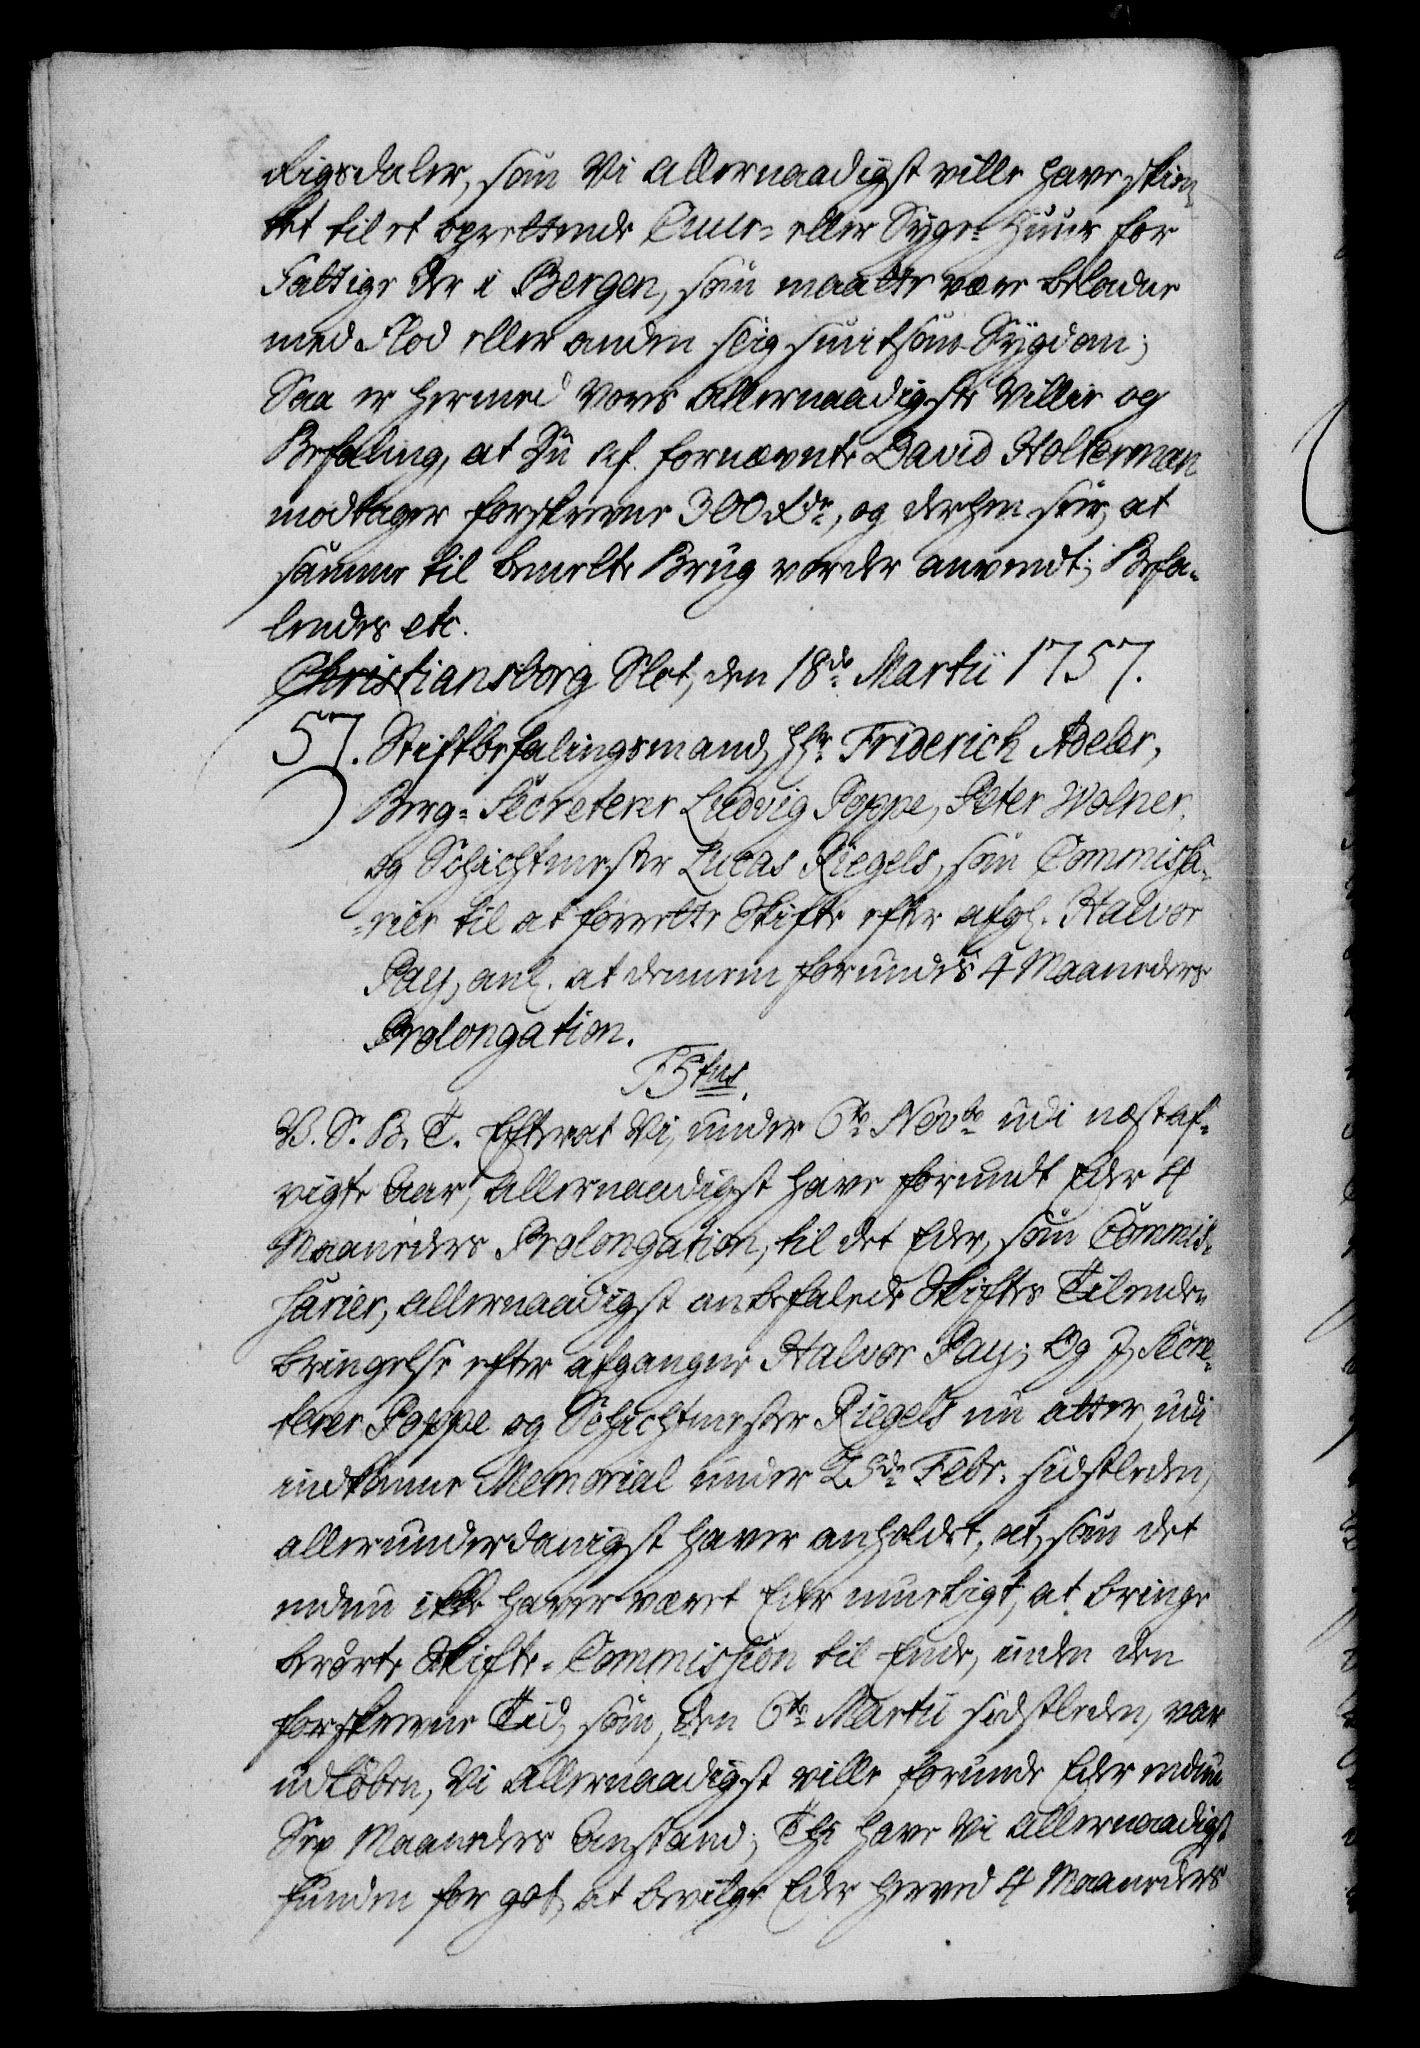 Rigsdaler, som Vi allernaadigst ville have skien-
ket til et oprettende Cuur- eller Syge-Huus for
Fattige der i Bergen, som maatte være beladne
med Flod eller anden slig smitsom Sygdom;
Saa er hermed Vores allernaadigste Villie og
Befaling, at Du af fornævnte David Holterman
modtager forskrevne 300 Rdr, og derhen seer, at
samme til bemelte Brug vorder anvendt; Befa-
lendes etc.
Christiansborg Slot, den 18de Martii 1757.
57. Stiftbefalingsmand, Hr Friderich Adeler,
Berg-Secreterer Ludvig Poppe, Peter Wolner,
og Schichtmester Lucas Riegels, som Commissa-
-rier til at forrette Skifte efter afg. Halvor
Pay, anl. at dennem forundes 4 Maaneders
Prolongation.
F5tus.
V. S. B. T. Efterat Vi, under 6te Novbr udi næst af-
vigte Aar, allernaadigst have forundt Eder 4
Maaneders Prolongation, til det Eder, som Commis-
sarier, allernaadigst anbefalede Skiftes Tilende-
bringelse efter afgangne Halvor Pay; Og I, Secre-
terer Poppe og Schichtmester Riegels nu atter, udi
indkomne Memorial under 25de Febr. sidstleden,
allerunderdanigst haver anholdet, at, som det
endnu ikke haver været Eder mueligt, at bringe
berørte Skifte-Commission til Ende, inden den
forskrevne Tid, som, den 6te Martii sidstleden, var
udløben, Vi allernaadigst ville forunde Eder endnu
Sex Maaneders Anstand; Thi have Vi allernaadigst
funden for got, at bevilge Eder herved 4 Maaneders